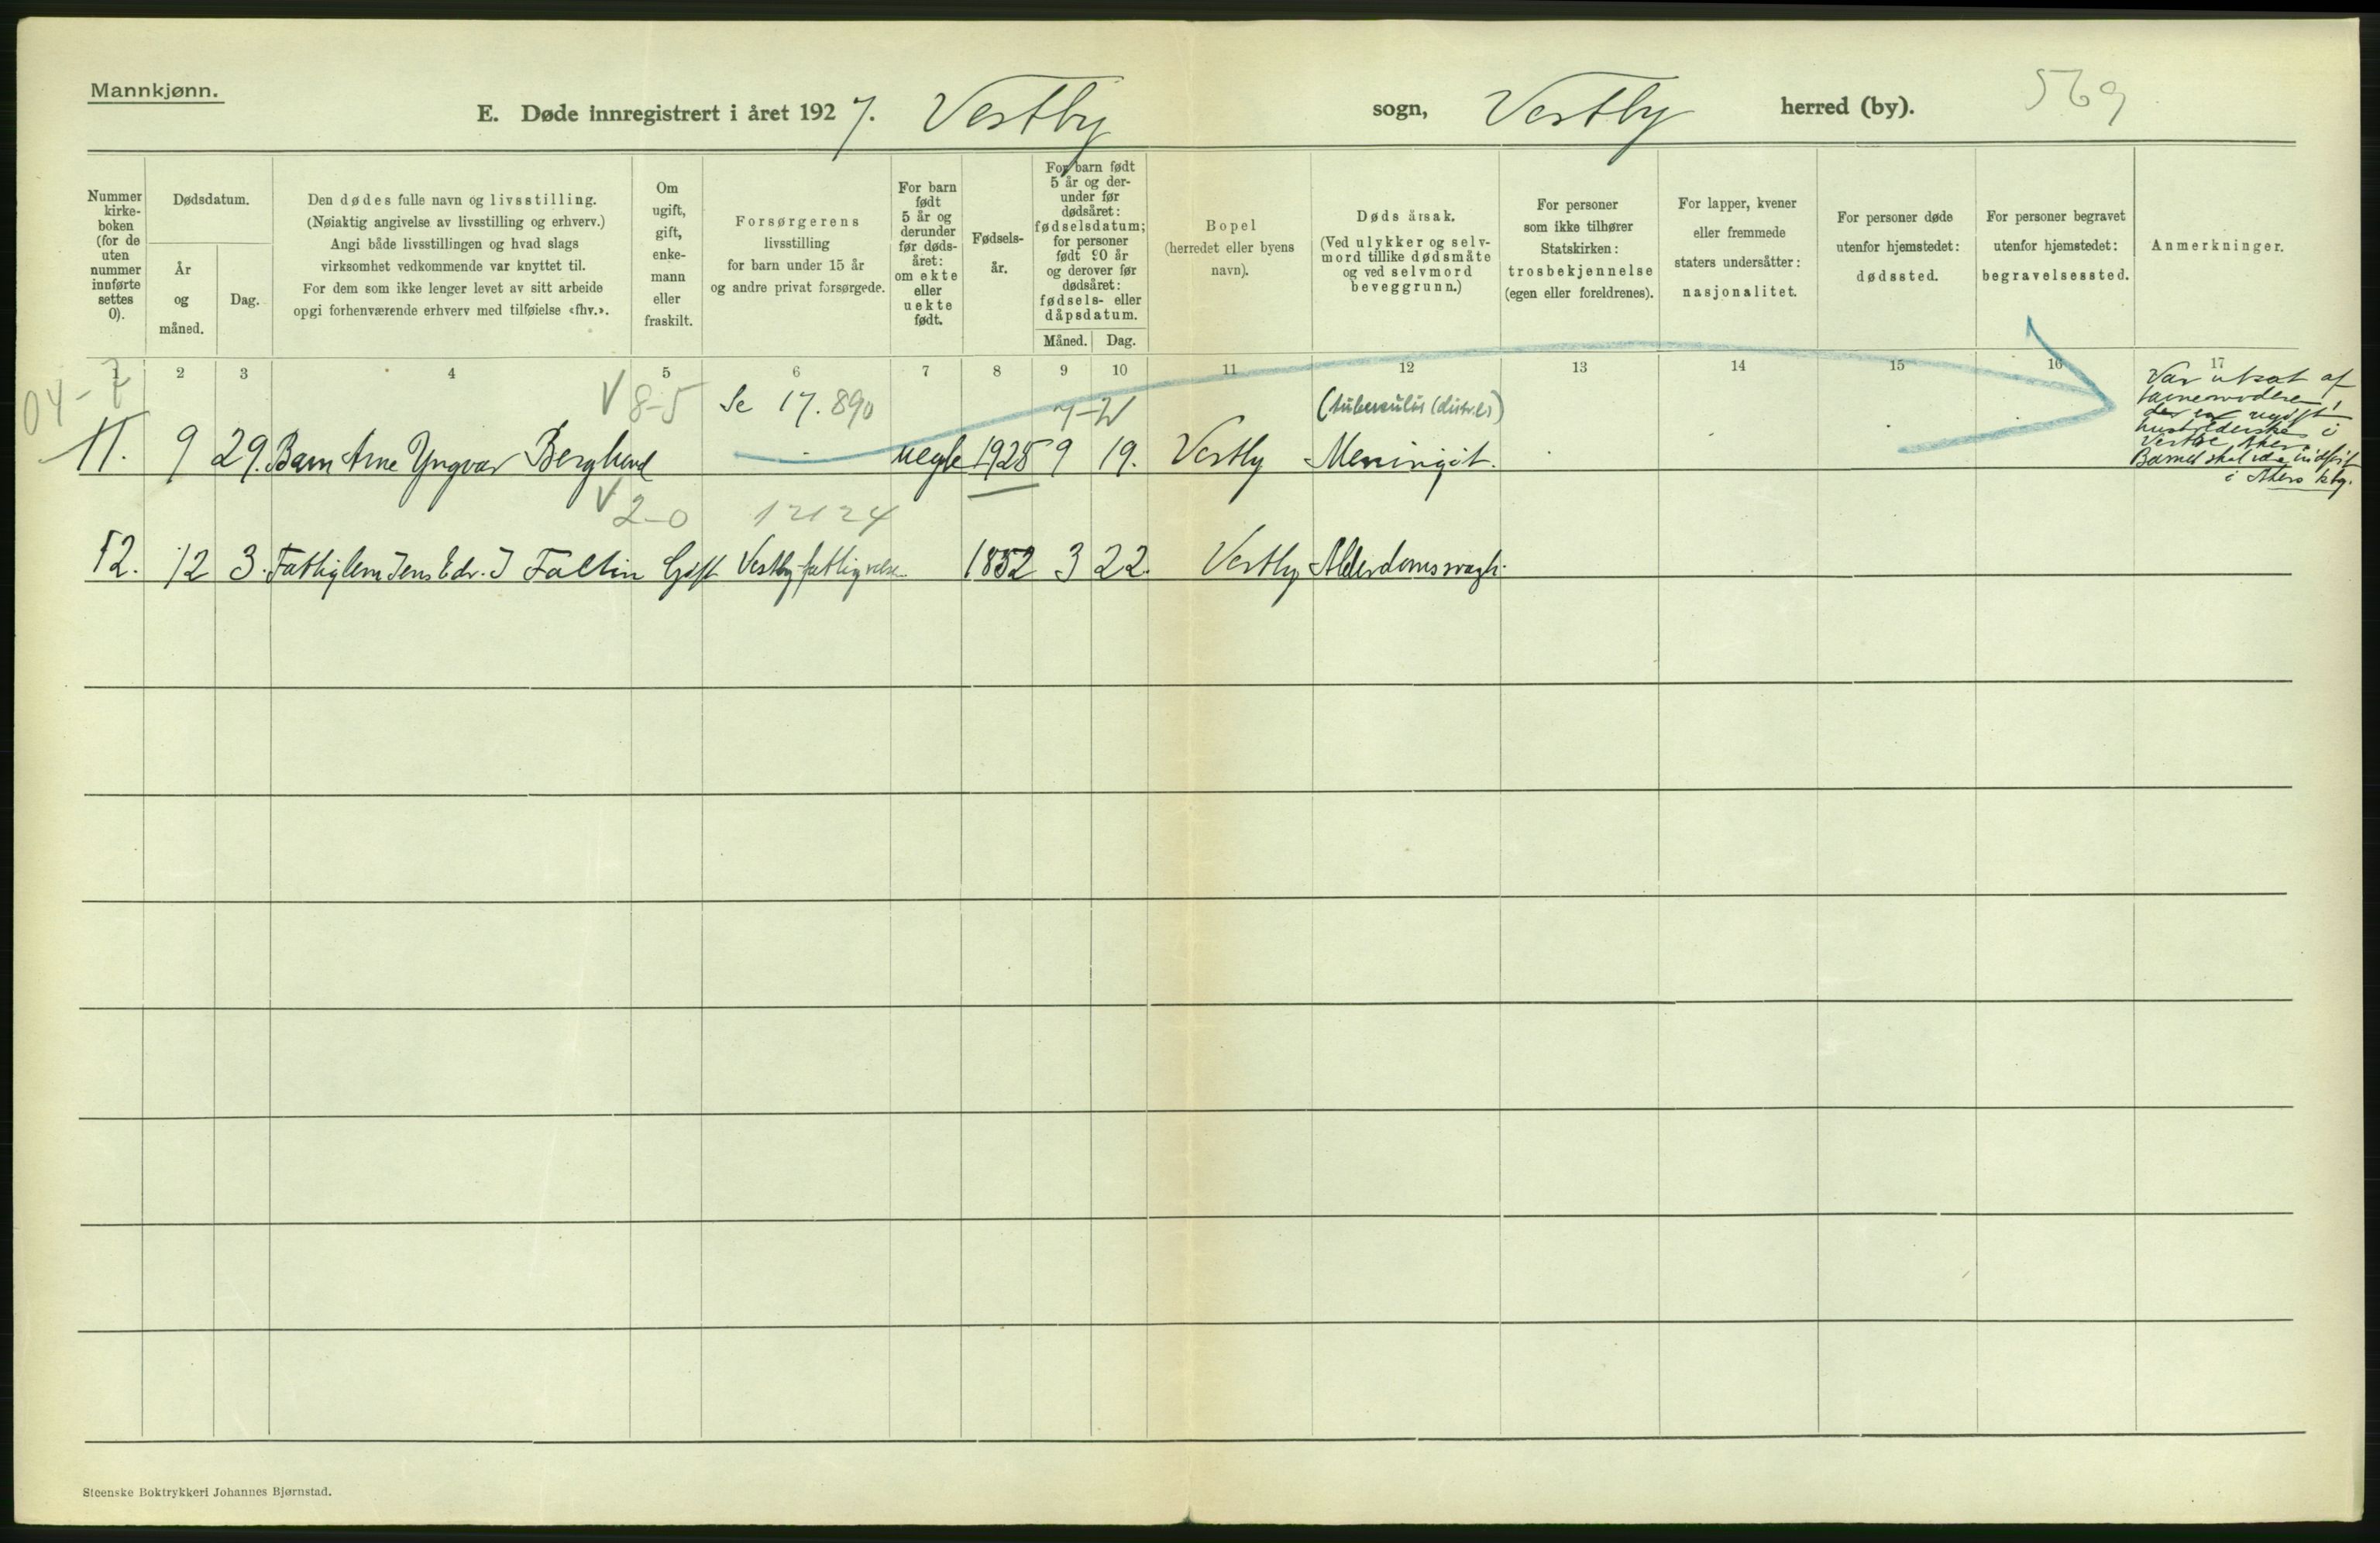 Mannkjønn.
E. Døde innregistrert i året 1927. Vestby sogn, Vestby herred (by). 569
Nummer
kirke-
boken
(for de
uten
nummer
innførte
settes
0).
Dødsdatum.
År
og
måned.
Dag.
Den dødes fulle navn og livsstilling.
(Nøiaktig angivelse av livsstilling og erhverv.)
Angi både livsstillingen og hvad slags
virksomhet vedkommende var knyttet til.
For dem som ikke lenger levet av sitt arbeide
opgi forhenværende erhverv med tilføielse «fhv.».
Om
ugift,
gift,
enke-
mann
eller
fraskilt.
Forsørgerens
livsstilling
for barn under 15 år
og andre privat forsørgede.
For barn
født
5 år og
derunder
før døds-
året:
om ekte
eller
uekte
født.
Fødsels-
år.
For barn født
5 år og der-
under før
dødsåret:
fødselsdatum;
for personer
født 90 år
og derover før
dødsåret:
fødsels- eller
dåpsdatum.
Måned. Dag.
Bopel
(herredet eller byens
navn).
Døds årsak.
(Ved ulykker og selv-
mord tillike dødsmåte
og ved selvmord
beveggrunn.)
For personer
som ikke tilhører
Statskirken:
trosbekjennelse
(egen eller foreldrenes).
For lapper, kvener
eller fremmede
staters undersåtter:
nasjonalitet.
For personer døde
utenfor hjemstedet:
dødssted.
For personer begravet
utenfor hjemstedet:
begravelsessted.
Anmerkninger.
1 2 3 4 5 6 7 8 9 10 11 12 13 14 15 16 17
04-7 V 8-5 Se 17.890 7-W (tuberculüs (distr.l.))
11. 9 29. Barn Arne Yngvar Berglund uegte 1925 9 19. Vestby Meningit.
Var utsat af
barnemoderen
der var ugift
i
Vestre Aker.
Barnet skal være indført
i Akers kbg.
V 2-0 12124
12. 12 3. Fattiglem Jens Edv. J Faltin Gift Vestby fattigvelse. 1852 3 22. Vestby Alderdomssvagh.
Steenske Boktrykkeri Johannes Bjørnstad.